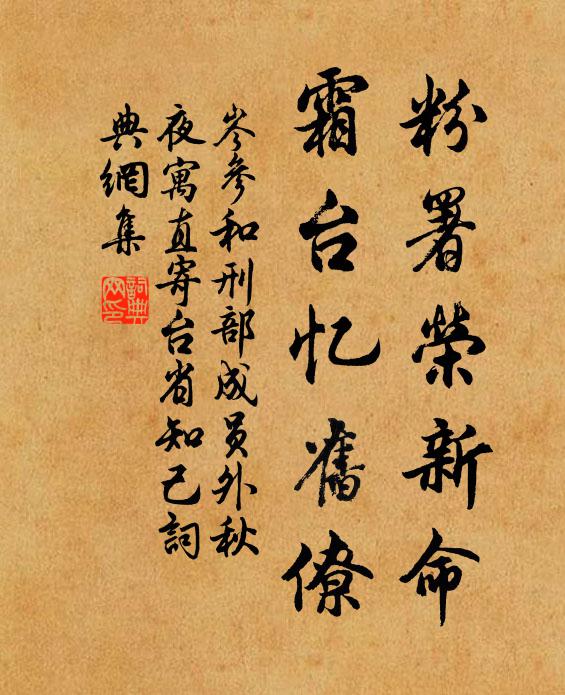 粉署榮新命
霜台忆舊僚
岑參和刑部成员外秋
夜寓直寄台省知己詞
典網集
詞典
网印